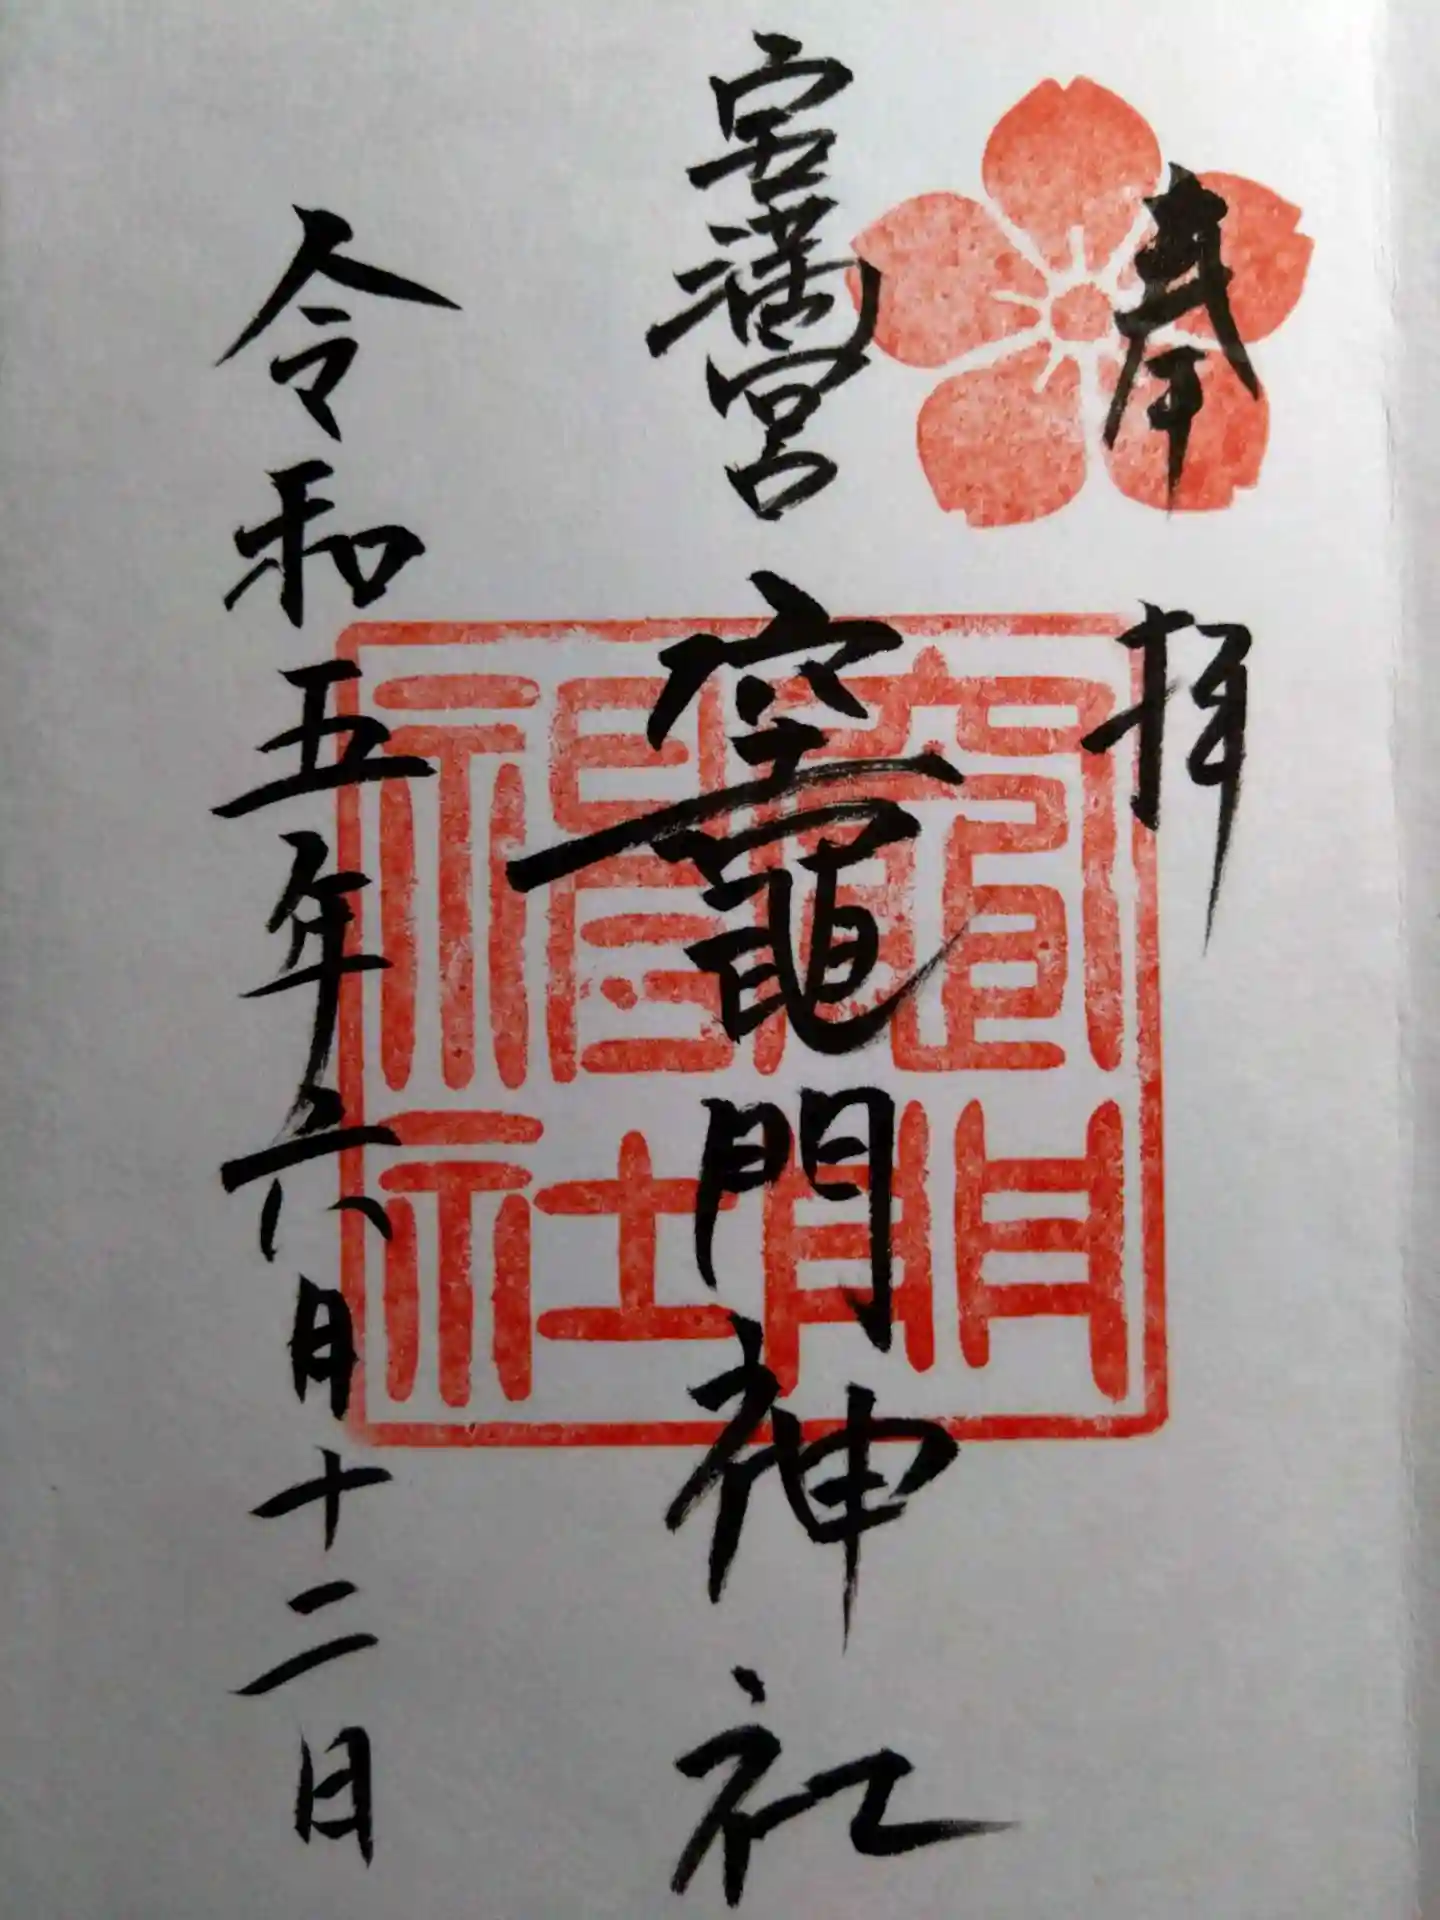 奉拝
宝満宮 竈門神社
竈門神社
令和五年六月十二日